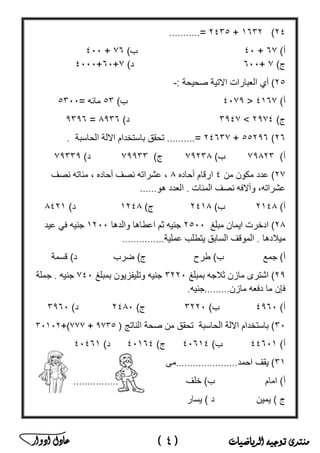 ٢٤) ١٦٣٢ + ٢٤٣٥ =...........
أ) ٦٧ + ٤٠ ب) ٧٦ + ٤٠٠
ج) ٧ +٦٠٠ د) ٧+٦٠+٤٠٠٠
٢٥) أي العبارات الاتية صحيحة :-
أ) ٤١٦٧ > ٤٠٧٩ ب) ٥٣ مائه =٥٣٠٠
ج) ٢٩٧٤ < ٣٩٤٧ د) ٨٩٣٦ = ٩٣٩٦
٢٦) ٥٥٢٩٦ + ٢٤٦٣٧ =.......... تحقق باستخدام الالة الحاسبة .
أ) ٧٩٨٢٣ ب) ٧٩٢٣٨ ج) ٧٩٩٣٣ د) ٧٩٣٣٩
٢٧) عدد مكون من ٤ ارقام أحاده ٨ ، عشراته نصف أحاده ، مئاته نصف
عشراته، وآلافه نصف المئات . العدد هو......
أ) ٢١٤٨ ب) ٢٤١٨ ج) ١٢٤٨ د) ٨٤٢١
٢٨) ادخرت ايمان مبلغ ٢٥٠٠ جنيه ثم اعطاها والدها ١٢٠٠ جنيه في عيد
ميلادها . الموقف السابق يتطلب عملية...............
أ) جمع ب) طرح ج) ضرب د) قسمة
٢٩) اشترى مازن ثلاجه بمبلغ ٣٢٢٠ جنيه وتليفزيون بمبلغ ٧٤٠ جنيه . جملة
فإن ما دفعه مازن.........جنيه.
أ) ٤٩٦٠ ب) ٣٢٢٠ ج) ٢٤٨٠ د) ٣٩٦٠
٣٠) باستخدام الالة الحاسبة تحقق من صحة الناتج ( ٩٧٣٥ + ٧٧٧)+٣٠١٠٢
أ) ٤٤٦٠١ ب) ٤٠٦١٤ ج) ٤٠١٦٤ د) ٤٠٤٦١
٣١) يقف احمد......................مى
أ) امام ب) خلف ................
ج ) يمين د ) يسار
منتدى توجيه الرياضيات ( ٤ ) عادل ادوار